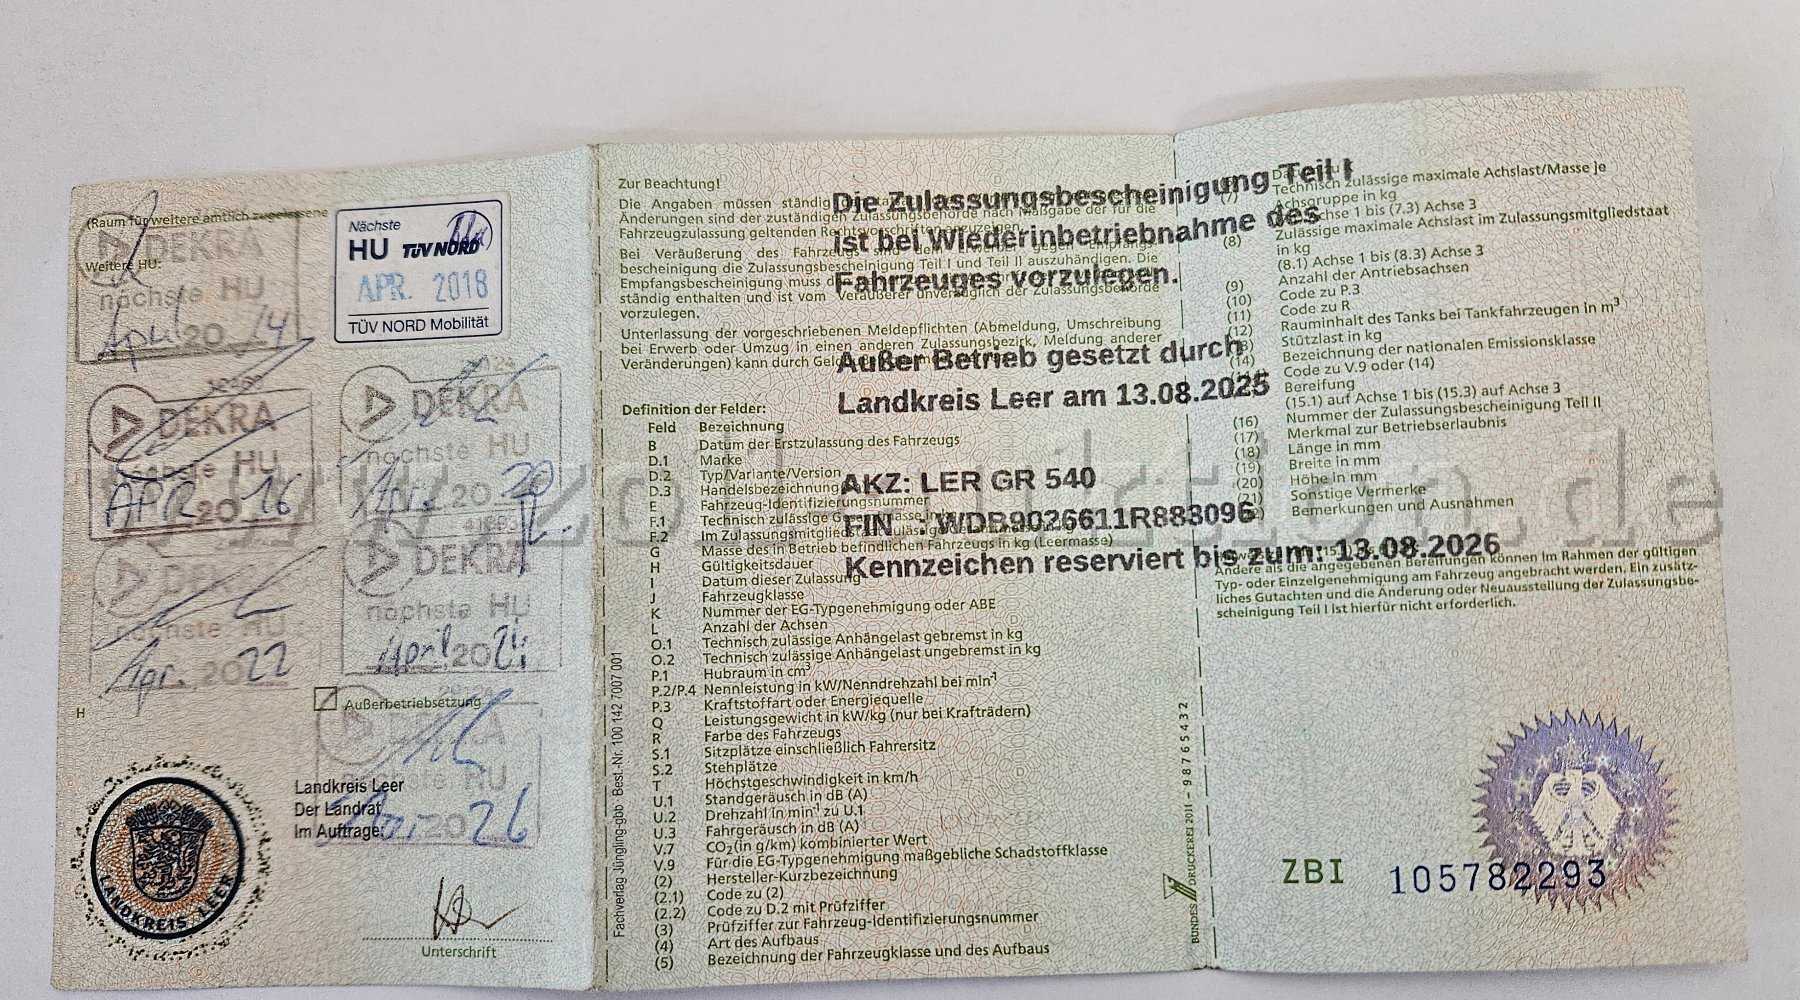 (Raum für weitere amtlich zugelassene
Weitere HU:
DEKRA
nächste HU
April 20 14
Nächste
HU TÜV NORD
APR. 2018
TÜV NORD Mobilität
DEKRA
nächste HU
APR 20 16
DEKRA
nächste HU
Apr. 20 20
DEKRA
nächste HU
Apr. 20 22
41893
DEKRA
nächste HU
April 20 24
H
Außerbetriebsetzung
nächste HU
20 26
Landkreis Leer
Der Landrat
Im Auftrage:
LANDKREIS LEER
Unterschrift
Fachverlag Jüngling-gbb Best.-Nr. 100 142 7007 001
Zur Beachtung!
Die Angaben müssen ständig
Änderungen sind der zuständigen Zulassungsbehörde nach Maßgabe der für die
Fahrzeugzulassung geltenden Rechtsvorschriften anzuzeigen.
Bei Veräußerung des Fahrzeugs sind dem
bescheinigung die Zulassungsbescheinigung Teil I und Teil II auszuhändigen. Die
Empfangsbescheinigung muss
ständig enthalten und ist vom Veräußerer unverzüglich der Zulassungsbehörde
vorzulegen.
Unterlassung der vorgeschriebenen Meldepflichten (Abmeldung, Umschreibung
bei Erwerb oder Umzug in einen anderen Zulassungsbezirk, Meldung anderer
Veränderungen) kann durch
Die Zulassungsbescheinigung Teil I
ist bei Wiederinbetriebnahme des
Fahrzeuges vorzulegen.
Außer Betrieb gesetzt durch
Landkreis Leer am 13.08.2025
AKZ: LER GR 540
FIN : WDB9026611R883096
Kennzeichen reserviert bis zum: 13.08.2026
Definition der Felder:
Feld Bezeichnung
B Datum der Erstzulassung des Fahrzeugs
D.1 Marke
D.2 Typ/Variante/Version
D.3 Handelsbezeichnung
E Fahrzeug-Identifizierungsnummer
F.1 Technisch zulässige Gesamtmasse in
F.2 Im Zulassungsmitgliedstaat zulässige
G Masse des in Betrieb befindlichen Fahrzeugs in kg (Leermasse)
H Gültigkeitsdauer
I Datum dieser Zulassung
J Fahrzeugklasse
K Nummer der EG-Typgenehmigung oder ABE
L Anzahl der Achsen
O.1 Technisch zulässige Anhängelast gebremst in kg
O.2 Technisch zulässige Anhängelast ungebremst in kg
P.1 Hubraum in cm³
P.2/P.4 Nennleistung in kW/Nenndrehzahl bei min⁻¹
P.3 Kraftstoffart oder Energiequelle
Q Leistungsgewicht in kW/kg (nur bei Krafträdern)
R Farbe des Fahrzeugs
S.1 Sitzplätze einschließlich Fahrersitz
S.2 Stehplätze
T Höchstgeschwindigkeit in km/h
U.1 Standgeräusch in dB (A)
U.2 Drehzahl in min⁻¹ zu U.1
U.3 Fahrgeräusch in dB (A)
V.7 CO₂ (in g/km) kombinierter Wert
V.9 Für die EG-Typgenehmigung maßgebliche Schadstoffklasse
(2) Hersteller-Kurzbezeichnung
(2.1) Code zu (2)
(2.2) Code zu D.2 mit Prüfziffer
(3) Prüfziffer zur Fahrzeug-Identifizierungsnummer
(4) Art des Aufbaus
(5) Bezeichnung der Fahrzeugklasse und des Aufbaus
(7) Technisch zulässige maximale Achslast/Masse je
Achsgruppe in kg
Achse 1 bis (7.3) Achse 3
(8) Zulässige maximale Achslast im Zulassungsmitgliedstaat
in kg
(8.1) Achse 1 bis (8.3) Achse 3
(9) Anzahl der Antriebsachsen
(10) Code zu P.3
(11) Code zu R
(12) Rauminhalt des Tanks bei Tankfahrzeugen in m³
Stützlast in kg
(14) Bezeichnung der nationalen Emissionsklasse
Code zu V.9 oder (14)
Bereifung
(15.1) auf Achse 1 bis (15.3) auf Achse 3
(16) Nummer der Zulassungsbescheinigung Teil II
(17) Merkmal zur Betriebserlaubnis
(18) Länge in mm
(19) Breite in mm
(20) Höhe in mm
(21) Sonstige Vermerke
Bemerkungen und Ausnahmen
Andere als die angegebenen Bereifungen können im Rahmen der gültigen
Typ- oder Einzelgenehmigung am Fahrzeug angebracht werden. Ein zusätz-
liches Gutachten und die Änderung oder Neuausstellung der Zulassungsbe-
scheinigung Teil I ist hierfür nicht erforderlich.
BUNDESDRUCKEREI 2011 - 98765432
ZBI 105782293
www.zoll-auktion.de